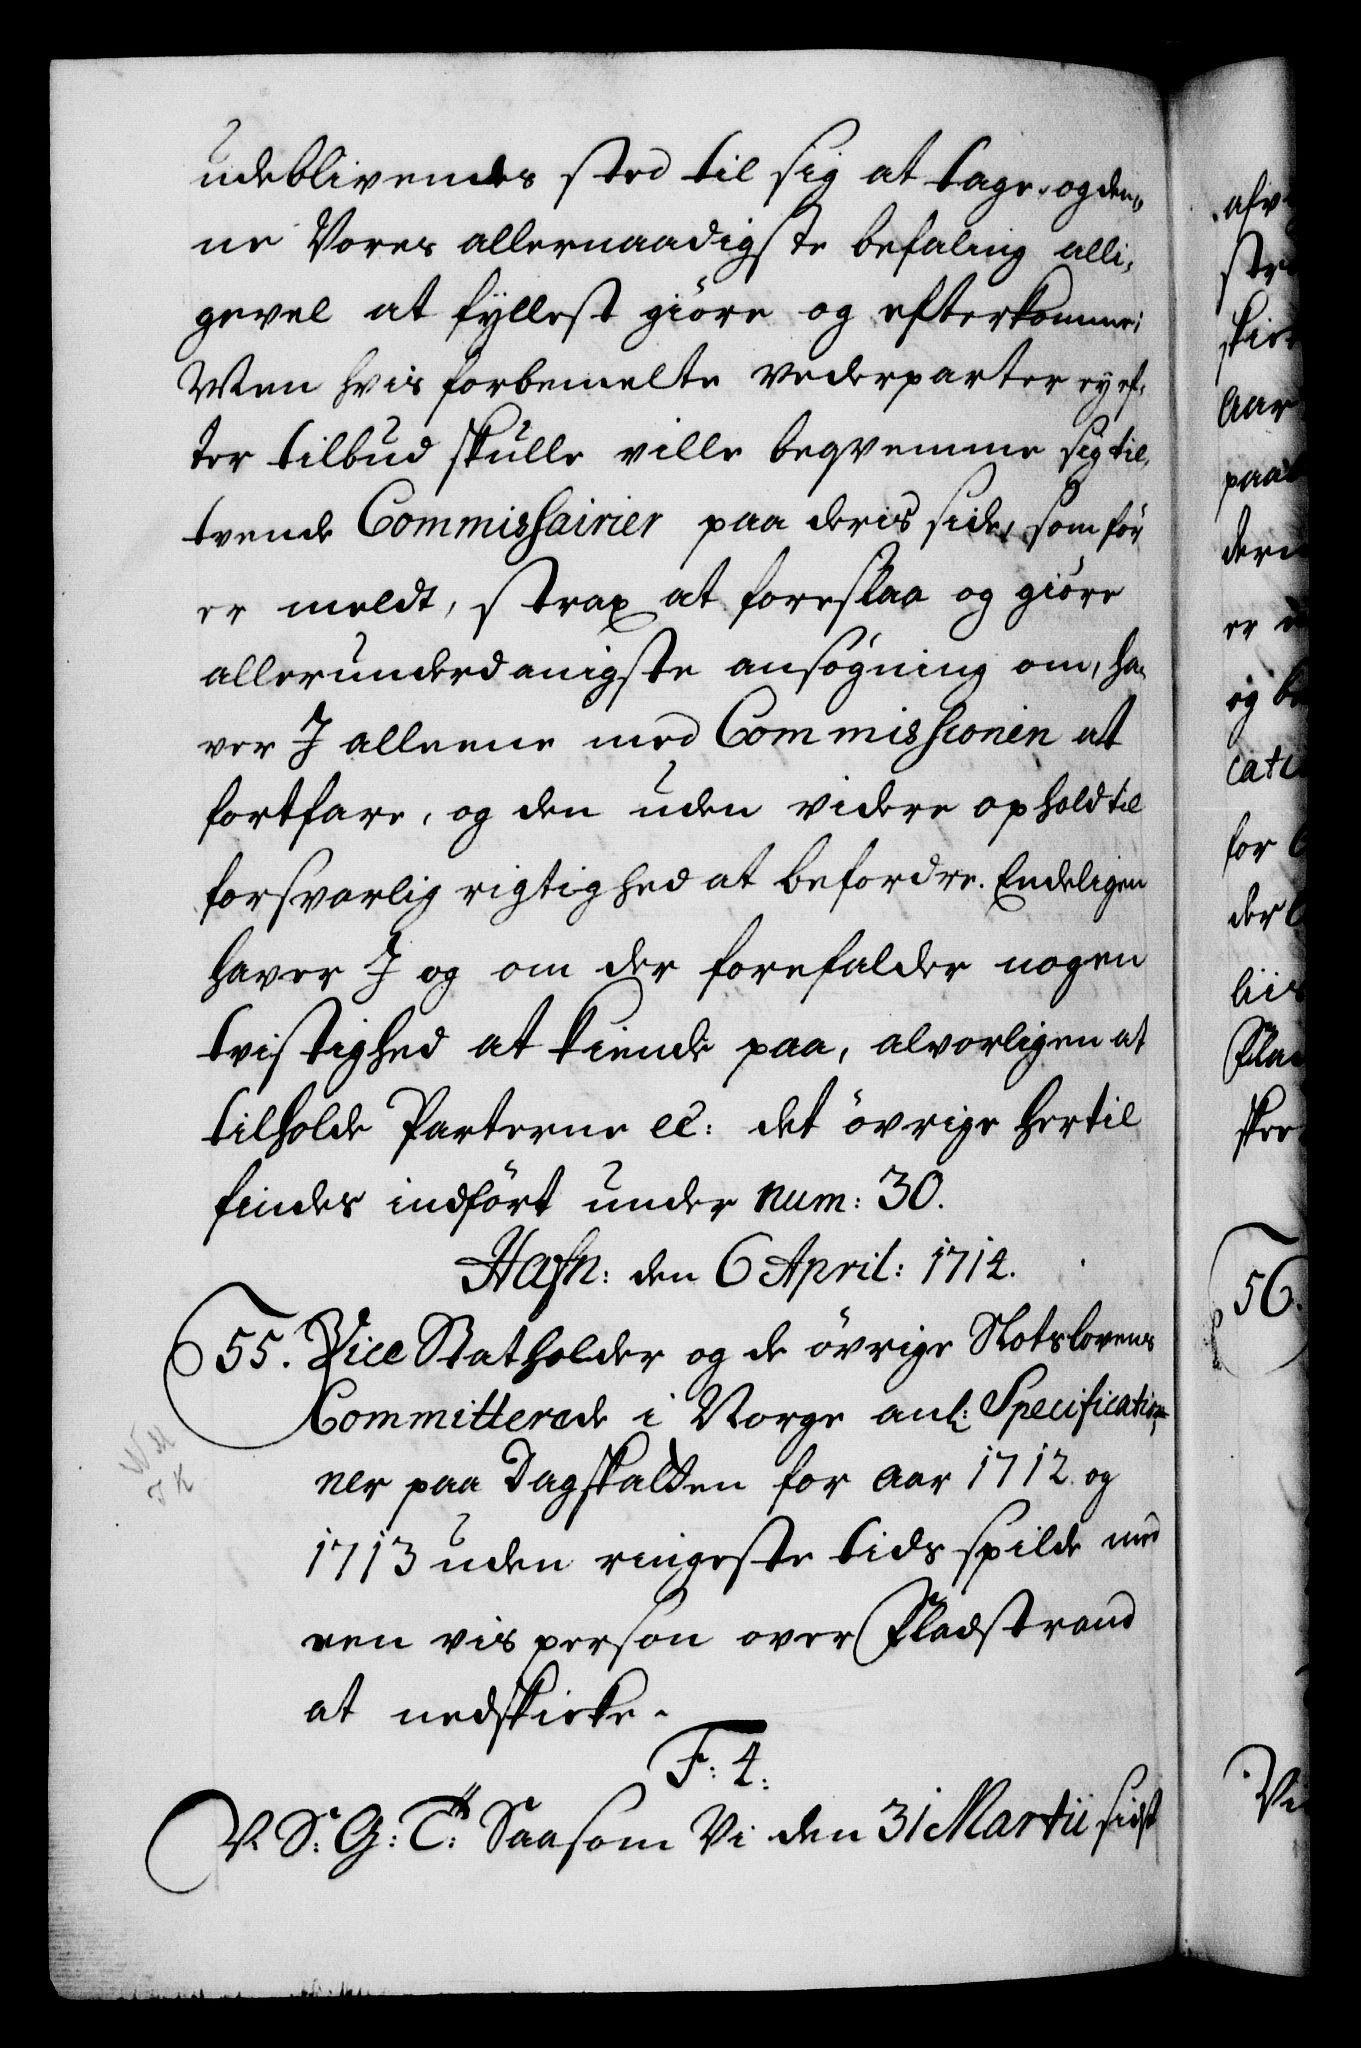 udeblivendes sted til sig at tage, og den„
ne Vores allernaadigste befaling alli„
gevel at fyllest giöre og efterkomme;
Men hvis forbemelte vederparter ey ef„
ter tilbud skulle ville beqvemme sig til,
tvende Commissairier paa deris side, som för
er meldt, strax at foreslaa og giöre
allerunderdanigste ansögning om, ha„
ver I alleene med Commissionen at
fortfare, og den uden videre ophold til
forsvarlig rigtighed at befordre. Endeligen
haver I og om der forefalder nogen
tvistighed at kiende paa, alvorligen at
tilholde Parterne etc: det övrige hertil
findes indfört under num: 30.
Hafn: den 6 April: 1714.
55. Vice Statholder og de övrige Slotslovens
Committerede i Norge anl: Specification„
ner paa Dagskatten for Aar 1712 og
1713 uden ringeste tids spilde med
een vis person over Fladstrand
at nedskicke.
F: 4:
V. S: G: T: Saasom Vi den 31 Martii sidst
56.